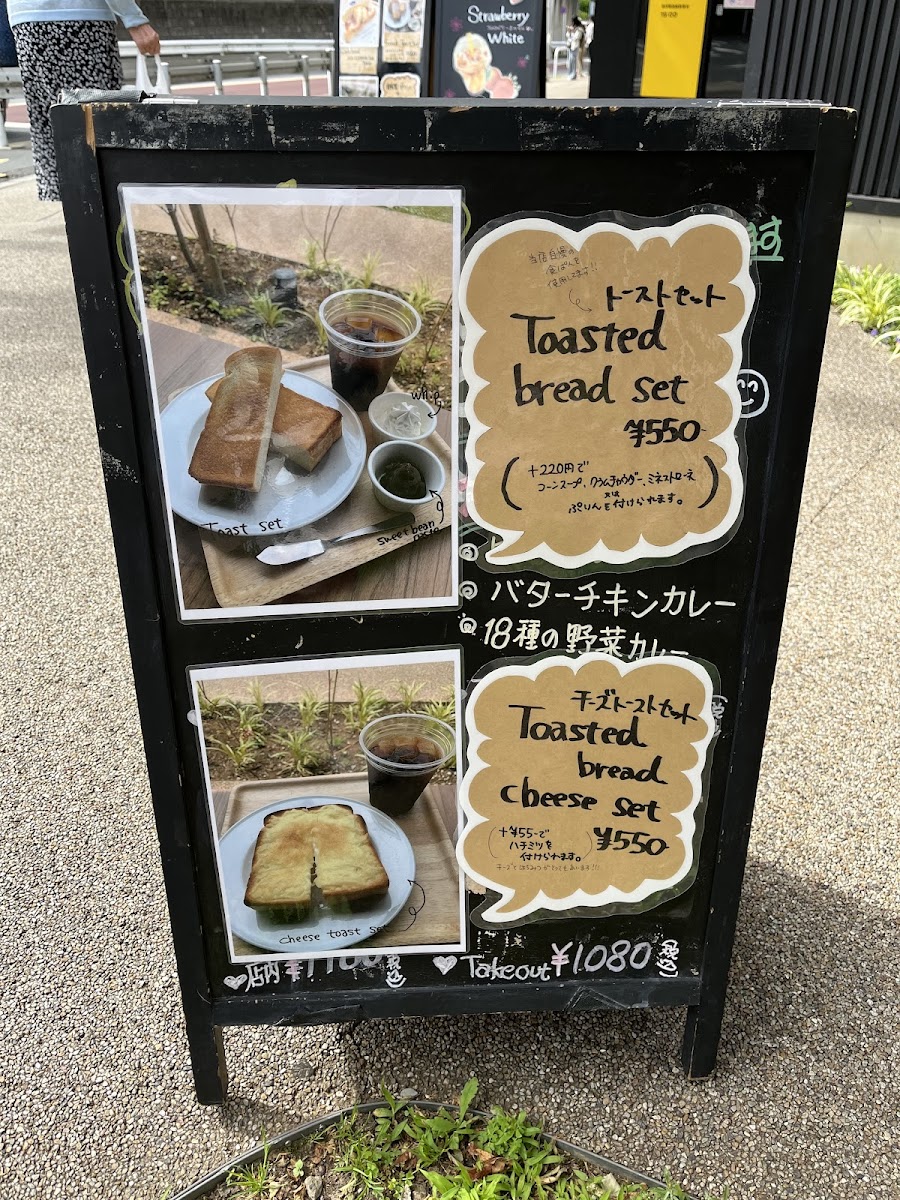 Strawberry
White
whip
Toast set
sweet bean
paste
当店自慢の
食ぱんを
使用してます!!
トーストセット
Toasted
bread set
¥550-
+220円で
コーンスープ、クラムチャウダー、ミネストローネ
又は
ぷりんを付けられます。
ます
バターチキンカレー
18種の野菜カレー
cheese toast set
チーズトーストセット
Toasted
bread
cheese set
¥550-
+¥55-で
ハチミツを
付けられます。
店内
Takeout ¥1.080